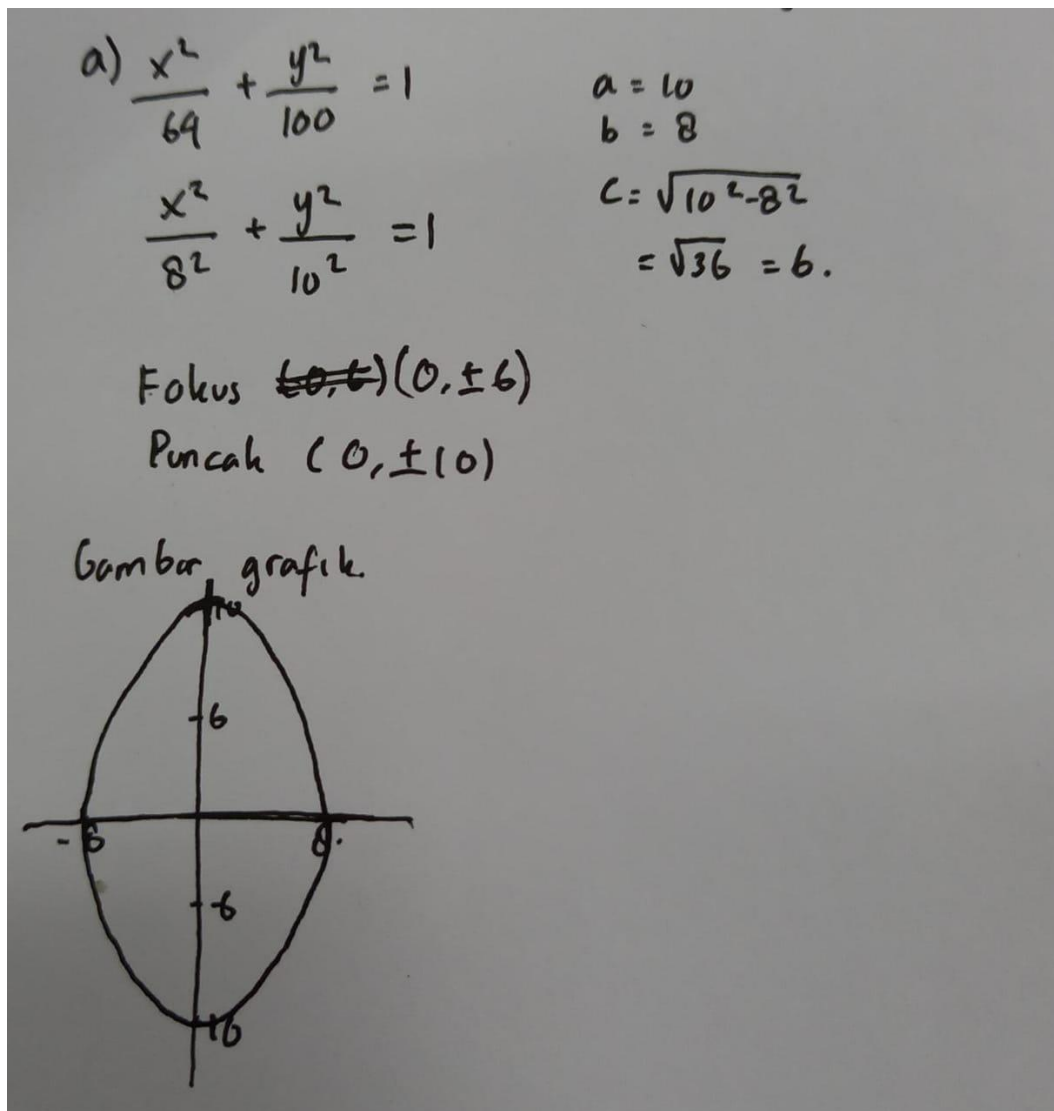 a) x²/64 + y²/100 = 1
x²/8² + y²/10² = 1
a = 10
b = 8
c = √10²-8²
= √36 = 6.
Fokus (0,±6)
Puncak (0,±10)
Gambar grafik.
10
6
-8
8
-6
-10